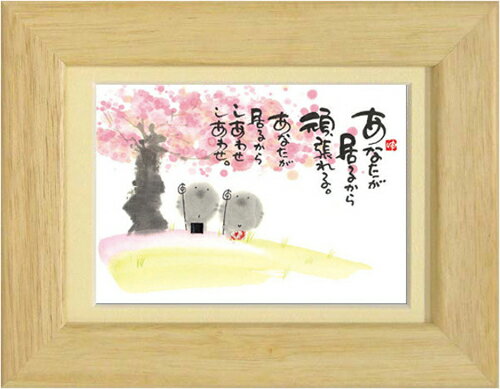 あなたが
居るから
頑張れる。
あなたが
居るから
しあわせ
しあわせ。